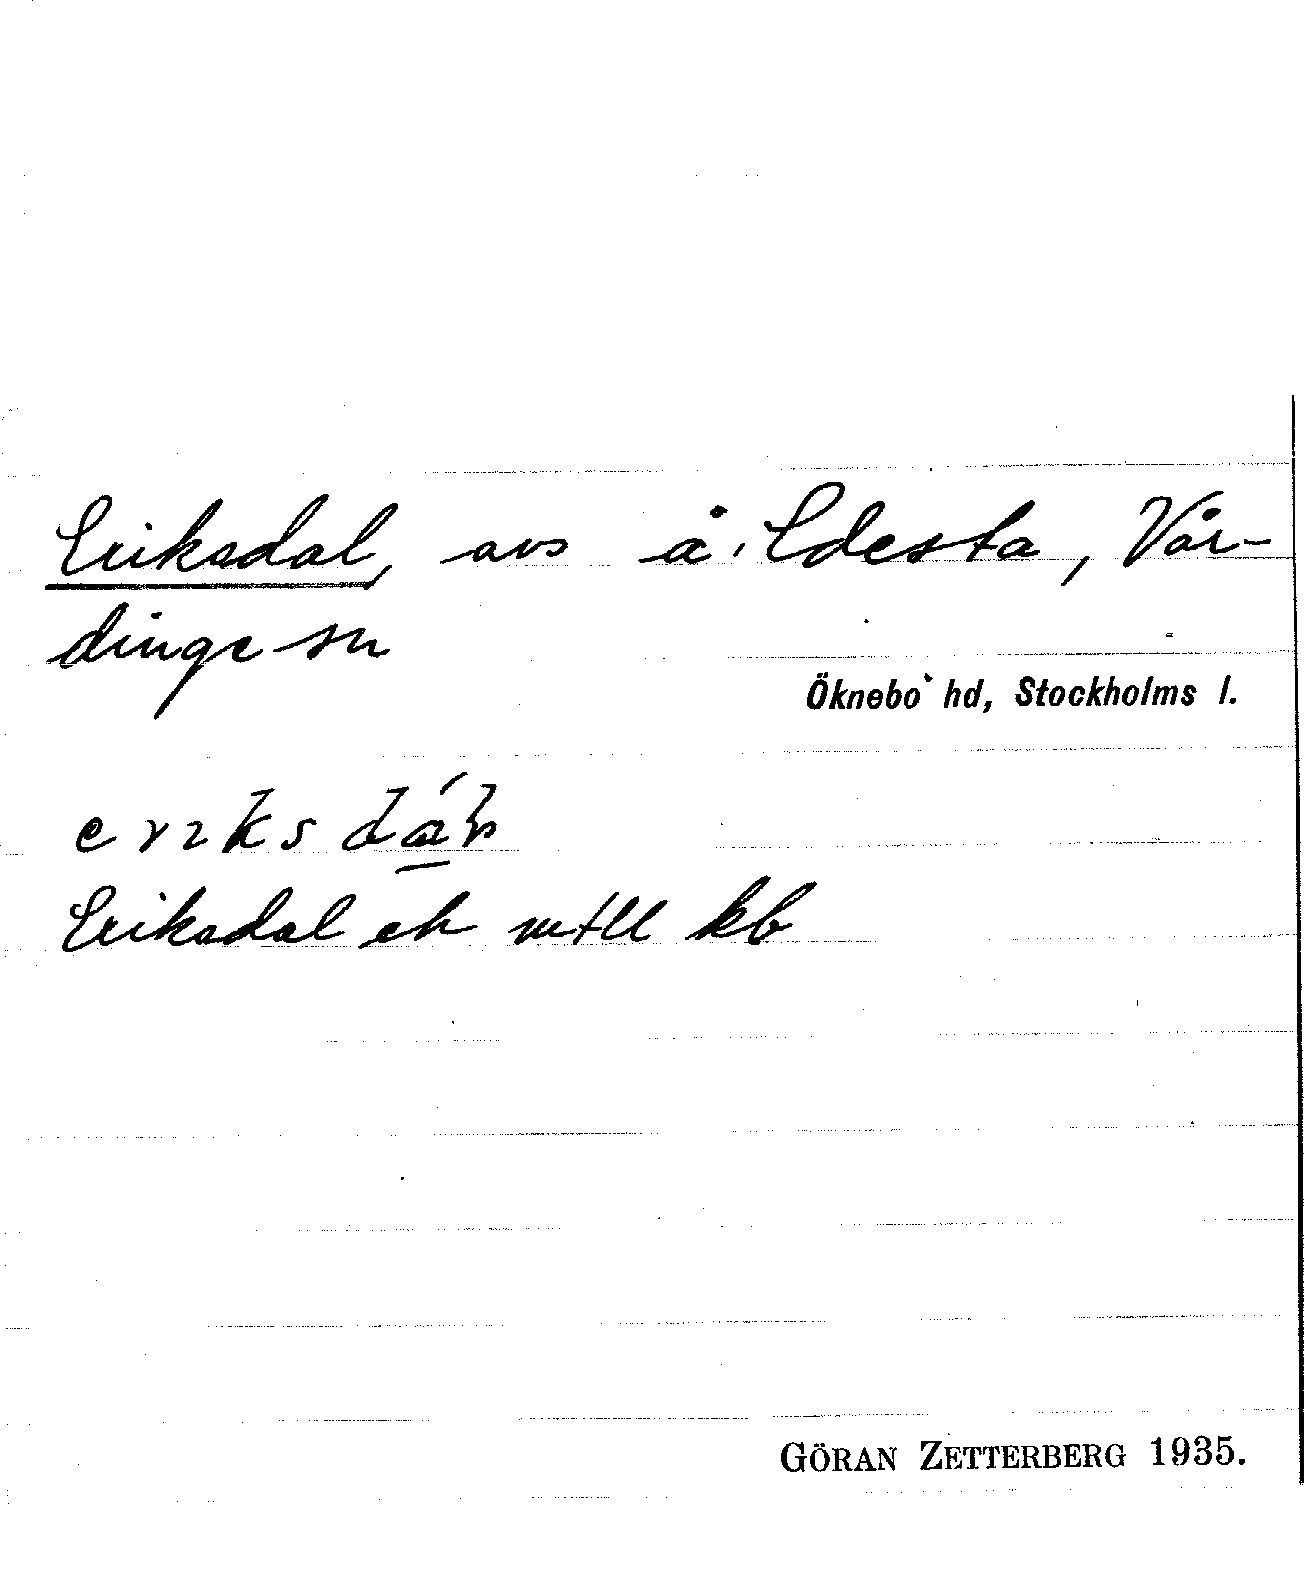 Eriksdal, avs å Edesta, Vår-
dinge sn
Öknebo hd, Stockholms l.
Eriksdal ek mtll kb
GÖRAN ZETTERBERG 1935.